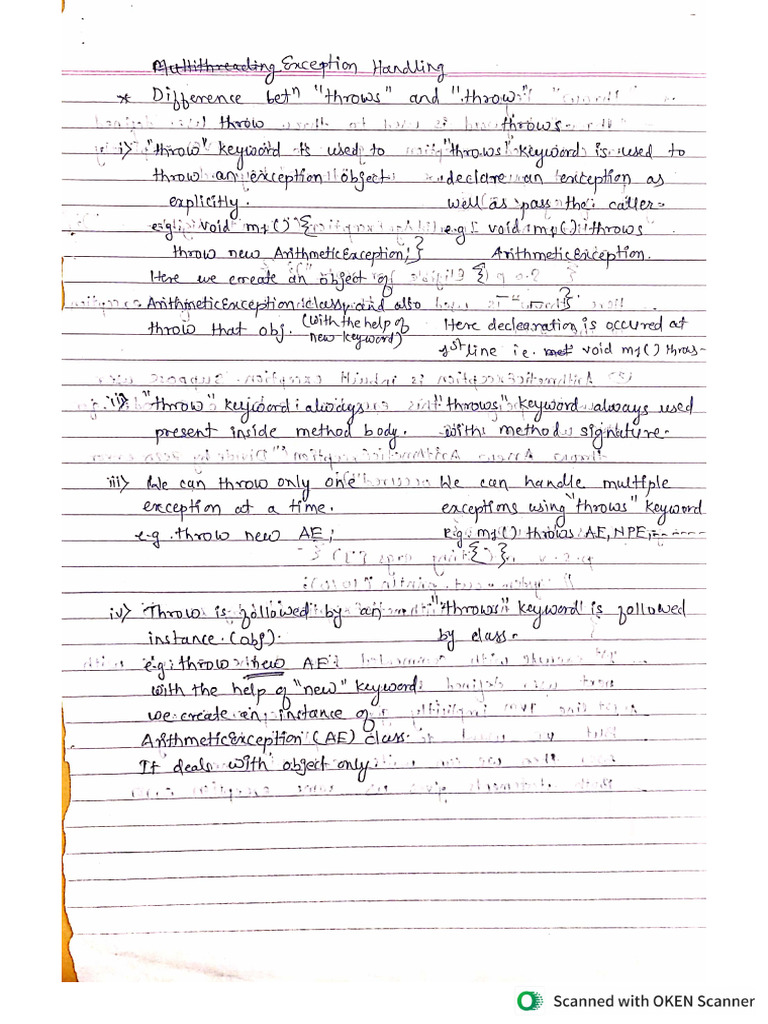 Multithreading Exception Handling
* Difference betn "throws" and "throw"
throw throws
i) "throw" keyword is used to "throws" keyword is used to
throw an exception object declare an exception as
explicitly. well as pass the caller.
e.g. void m1() { e.g. void m1() throws
throw new ArithmeticException; } ArithmeticException.
Here we create an object of {
ArithmeticException class and also - - - }
throw that obj. (with the help of Here declearation is occured at
new keyword) 1st line i.e. void m1() throws-
ii) "throw" keyword always "throws" keyword always used
present inside method body. with method signature.
iii) We can throw only one We can handle multiple
exception at a time. exceptions using "throws" keyword
e.g. throw new AE; e.g. m1() throws AE, NPE, -----
{ }
iv) Throw is followed by an "throws" keyword is followed
instance (obj). by class.
e.g: throw new AE
with the help of "new" keyword
we create an instance of
ArithmeticException (AE) class.
It deals with object only
Scanned with OKEN Scanner